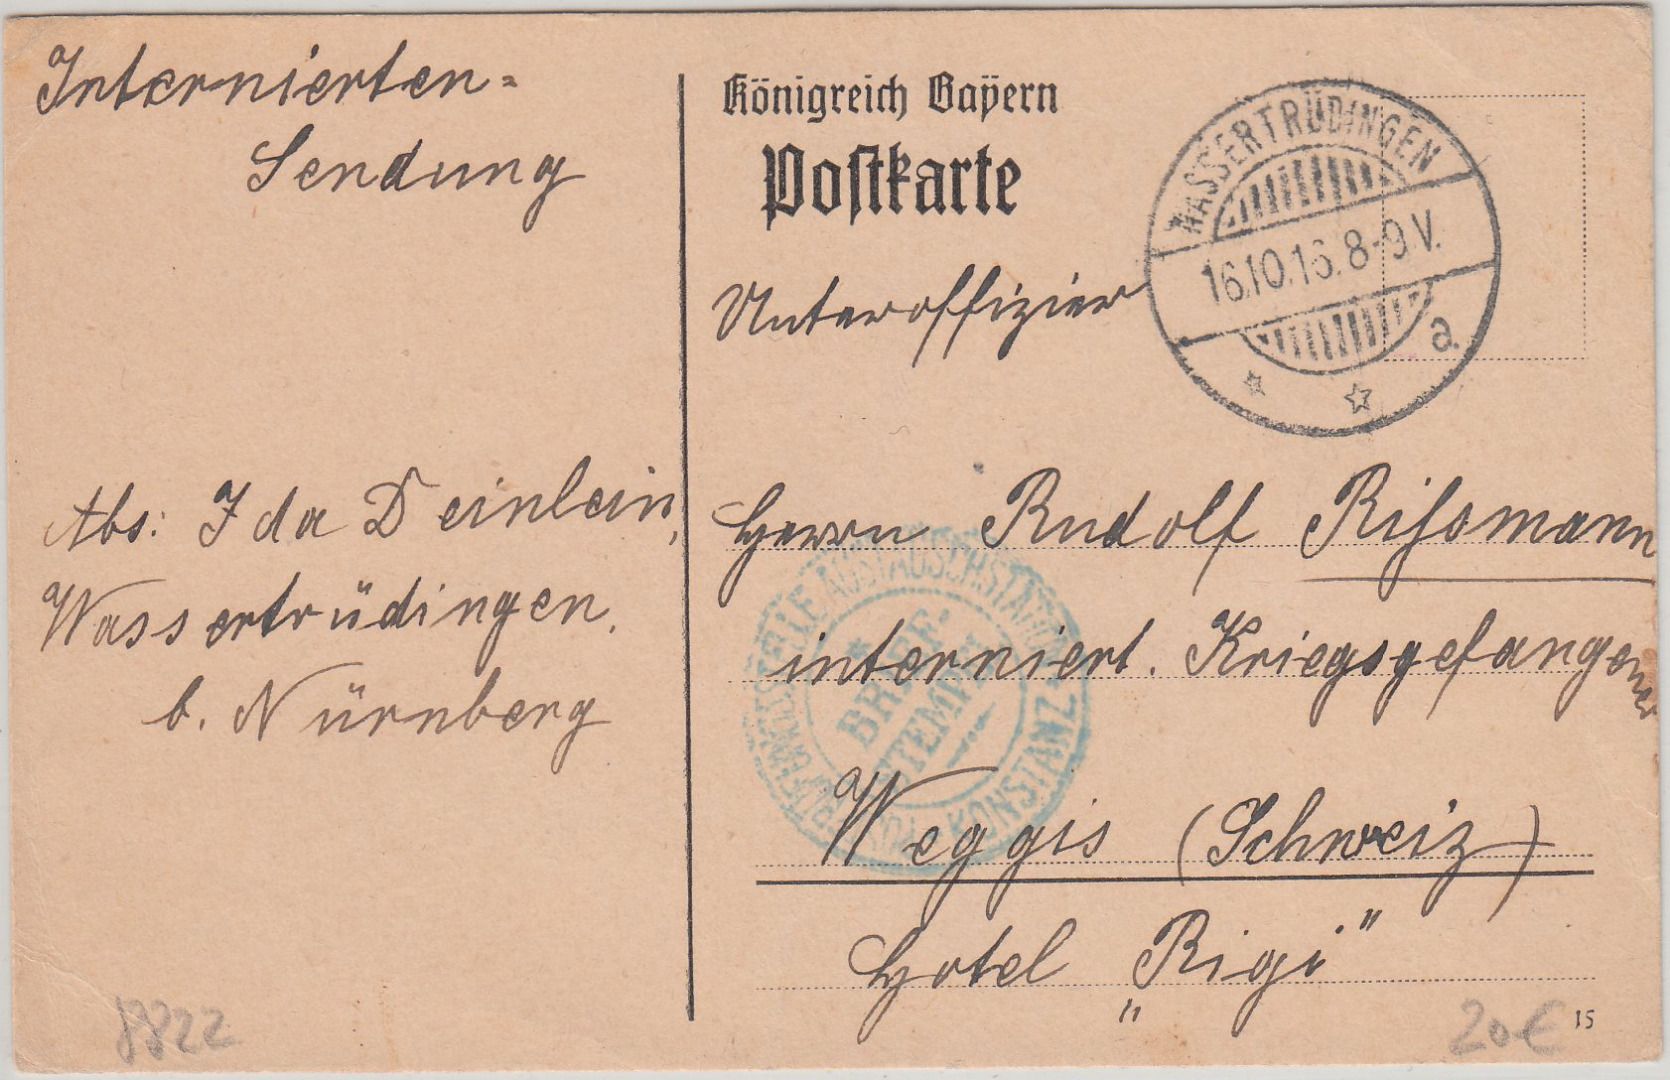 Internierten=
Sendung
Königreich Bayern
Postkarte
WASSERTRÜDINGEN
16.10.16. 8-9 V.
a.
Unteroffizier
Abs: Ida Deinlein,
Wassertrüdingen.
b. Nürnberg
Herrn Rudolf Rißmann
interniert. Kriegsgefangener
AUSTAUSCHSTATION
BRIEF-
STEMPEL
KONSTANZ
Weggis (Schweiz)
Hotel „Rigi"
8822
20€
15